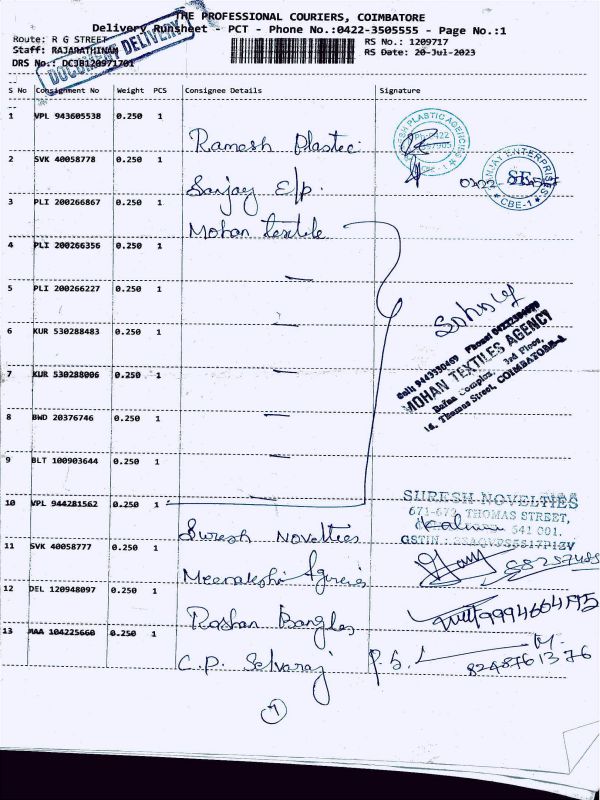 THE PROFESSIONAL COURIERS, COIMBATORE
Delivery Runsheet - PCT - Phone No.:0422-3505555 - Page No.:1
DOCUMENT DELIVERY
Route: R G STREET
RS No.: 1209717
Staff: RAJARATHINAM
RS Date: 20-Jul-2023
DRS No.: DC38120971701
S No Consignment No Weight PCS Consignee Details Signature
1 VPL 943605538 0.250 1
Ramesh Plastec
2 SVK 40058778 0.250 1
Sanjay E/p.
SANJAY ENTERPRISES
SE
CBE-1
3 PLI 200266867 0.250 1
Mohan textile
4 PLI 200266356 0.250 1
5 PLI 200266227 0.250 1
6 KUR 530288483 0.250 1
Cell: 9443330469
MOHAN TEXTILES AGENCY
3rd Floor,
16, Thomas Street, COIMBATORE-1
7 KUR 530288006 0.250 1
8 BWD 20376746 0.250 1
9 BLT 100903644 0.250 1
10 VPL 944281562 0.250 1
Suresh Novelties
SURESH NOVELTIES
671-672, THOMAS STREET,
641 001.
11 SVK 40058777 0.250 1
Meenakshi Agencies
12 DEL 120948097 0.250 1
Roshan Bangles
13 MAA 104225660 0.250 1
C.P. Selvaraj P.S.
8248761376